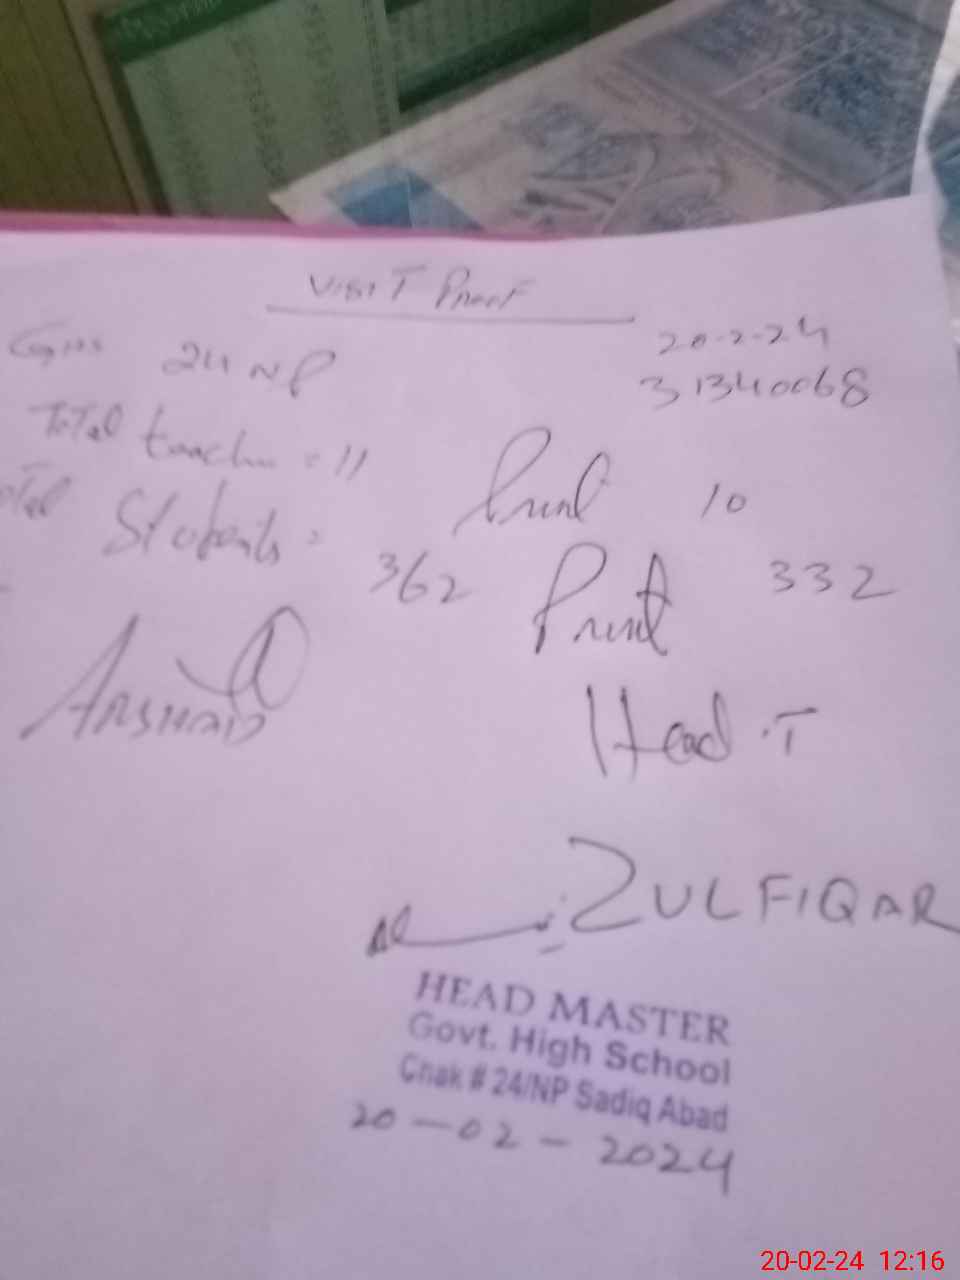 Visit Proof
20-2-24
GHS 24 NP
31340068
Total teacher = 11
Prent 10
Total Students = 362
Prent 332
Arshad
Head.T
ZULFIQAR
HEAD MASTER
Govt. High School
Chak # 24/NP Sadiq Abad
20-02-2024
20-02-24 12:16